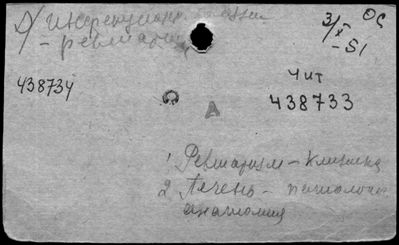 Д/ Инфекцион
- ревматизм
3/X - 51
ОС
438734
Чит
438733
А
1 Ревматизм - клиника
2 Печень - патологич
анатомия